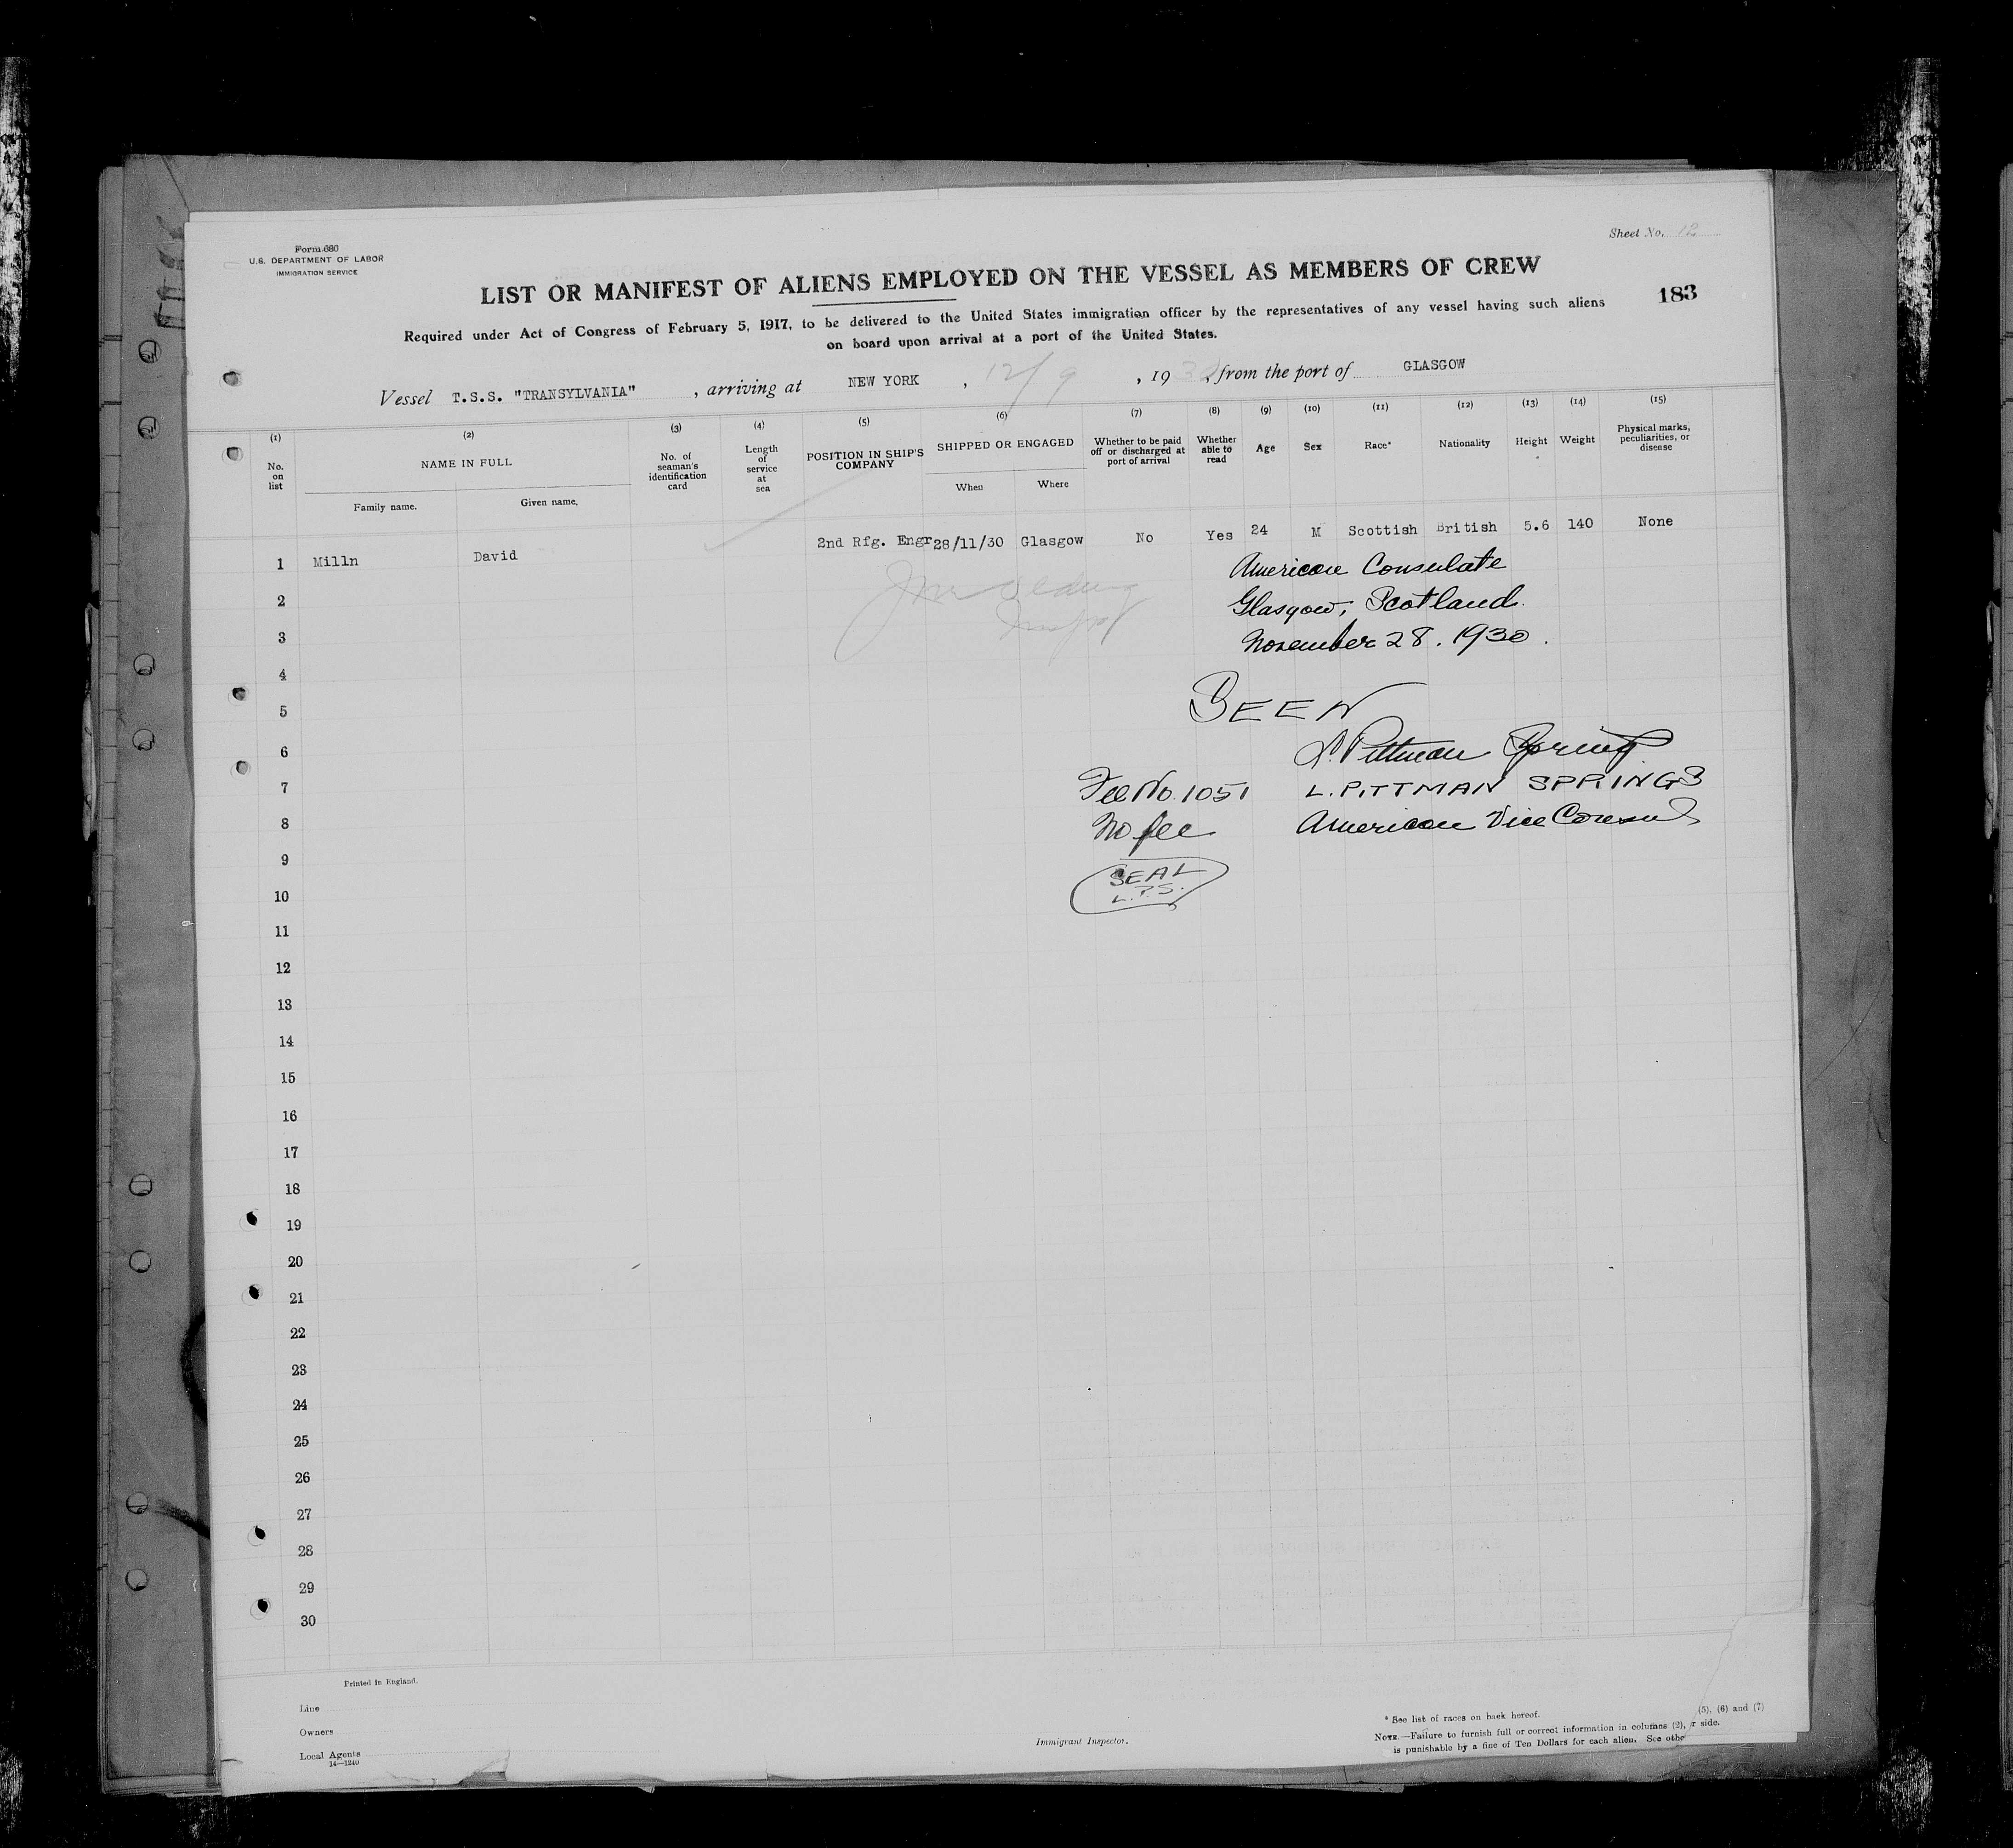 Form 680
U.S. DEPARTMENT OF LABOR
IMMIGRATION SERVICE
Sheet No. 12
LIST OR MANIFEST OF ALIENS EMPLOYED ON THE VESSEL AS MEMBERS OF CREW
183
Required under Act of Congress of February 5, 1917, to be delivered to the United States immigration officer by the representatives of any vessel having such aliens
on board upon arrival at a port of the United States.
Vessel T.S.S. "TRANSYLVANIA", arriving at NEW YORK, 12/9, 1930, from the port of GLASGOW
(1) (2) (3) (4) (5) (6) (7) (8) (9) (10) (11) (12) (13) (14) (15)
No. on list
NAME IN FULL
Family name.
Given name.
No. of seaman's identification card
Length of service at sea
POSITION IN SHIP'S COMPANY
SHIPPED OR ENGAGED
When
Where
Whether to be paid off or discharged at port of arrival
Whether able to read
Age
Sex
Race*
Nationality
Height
Weight
Physical marks, peculiarities, or disease
1 Milln David 2nd Rfg. Engr 28/11/30 Glasgow No Yes 24 M Scottish British 5.6 140 None
American Consulate
2
Glasgow, Scotland.
3
November 28. 1930.
4
5
SEEN
6
L. Pittman Springs
7
Fee No. 1051 L. PITTMAN SPRINGS
8
No fee American Vice Consul
9
SEAL
10
L.P.S.
11
12
13
14
15
16
17
18
19
20
21
22
23
24
25
26
27
28
29
30
Printed in England.
Line
Owners
Local Agents
14—1240
Immigrant Inspector.
* See list of races on back hereof.
(5), (6) and (7)
NOTE.—Failure to furnish full or correct information in columns (2), r side.
is punishable by a fine of Ten Dollars for each alien. See othe